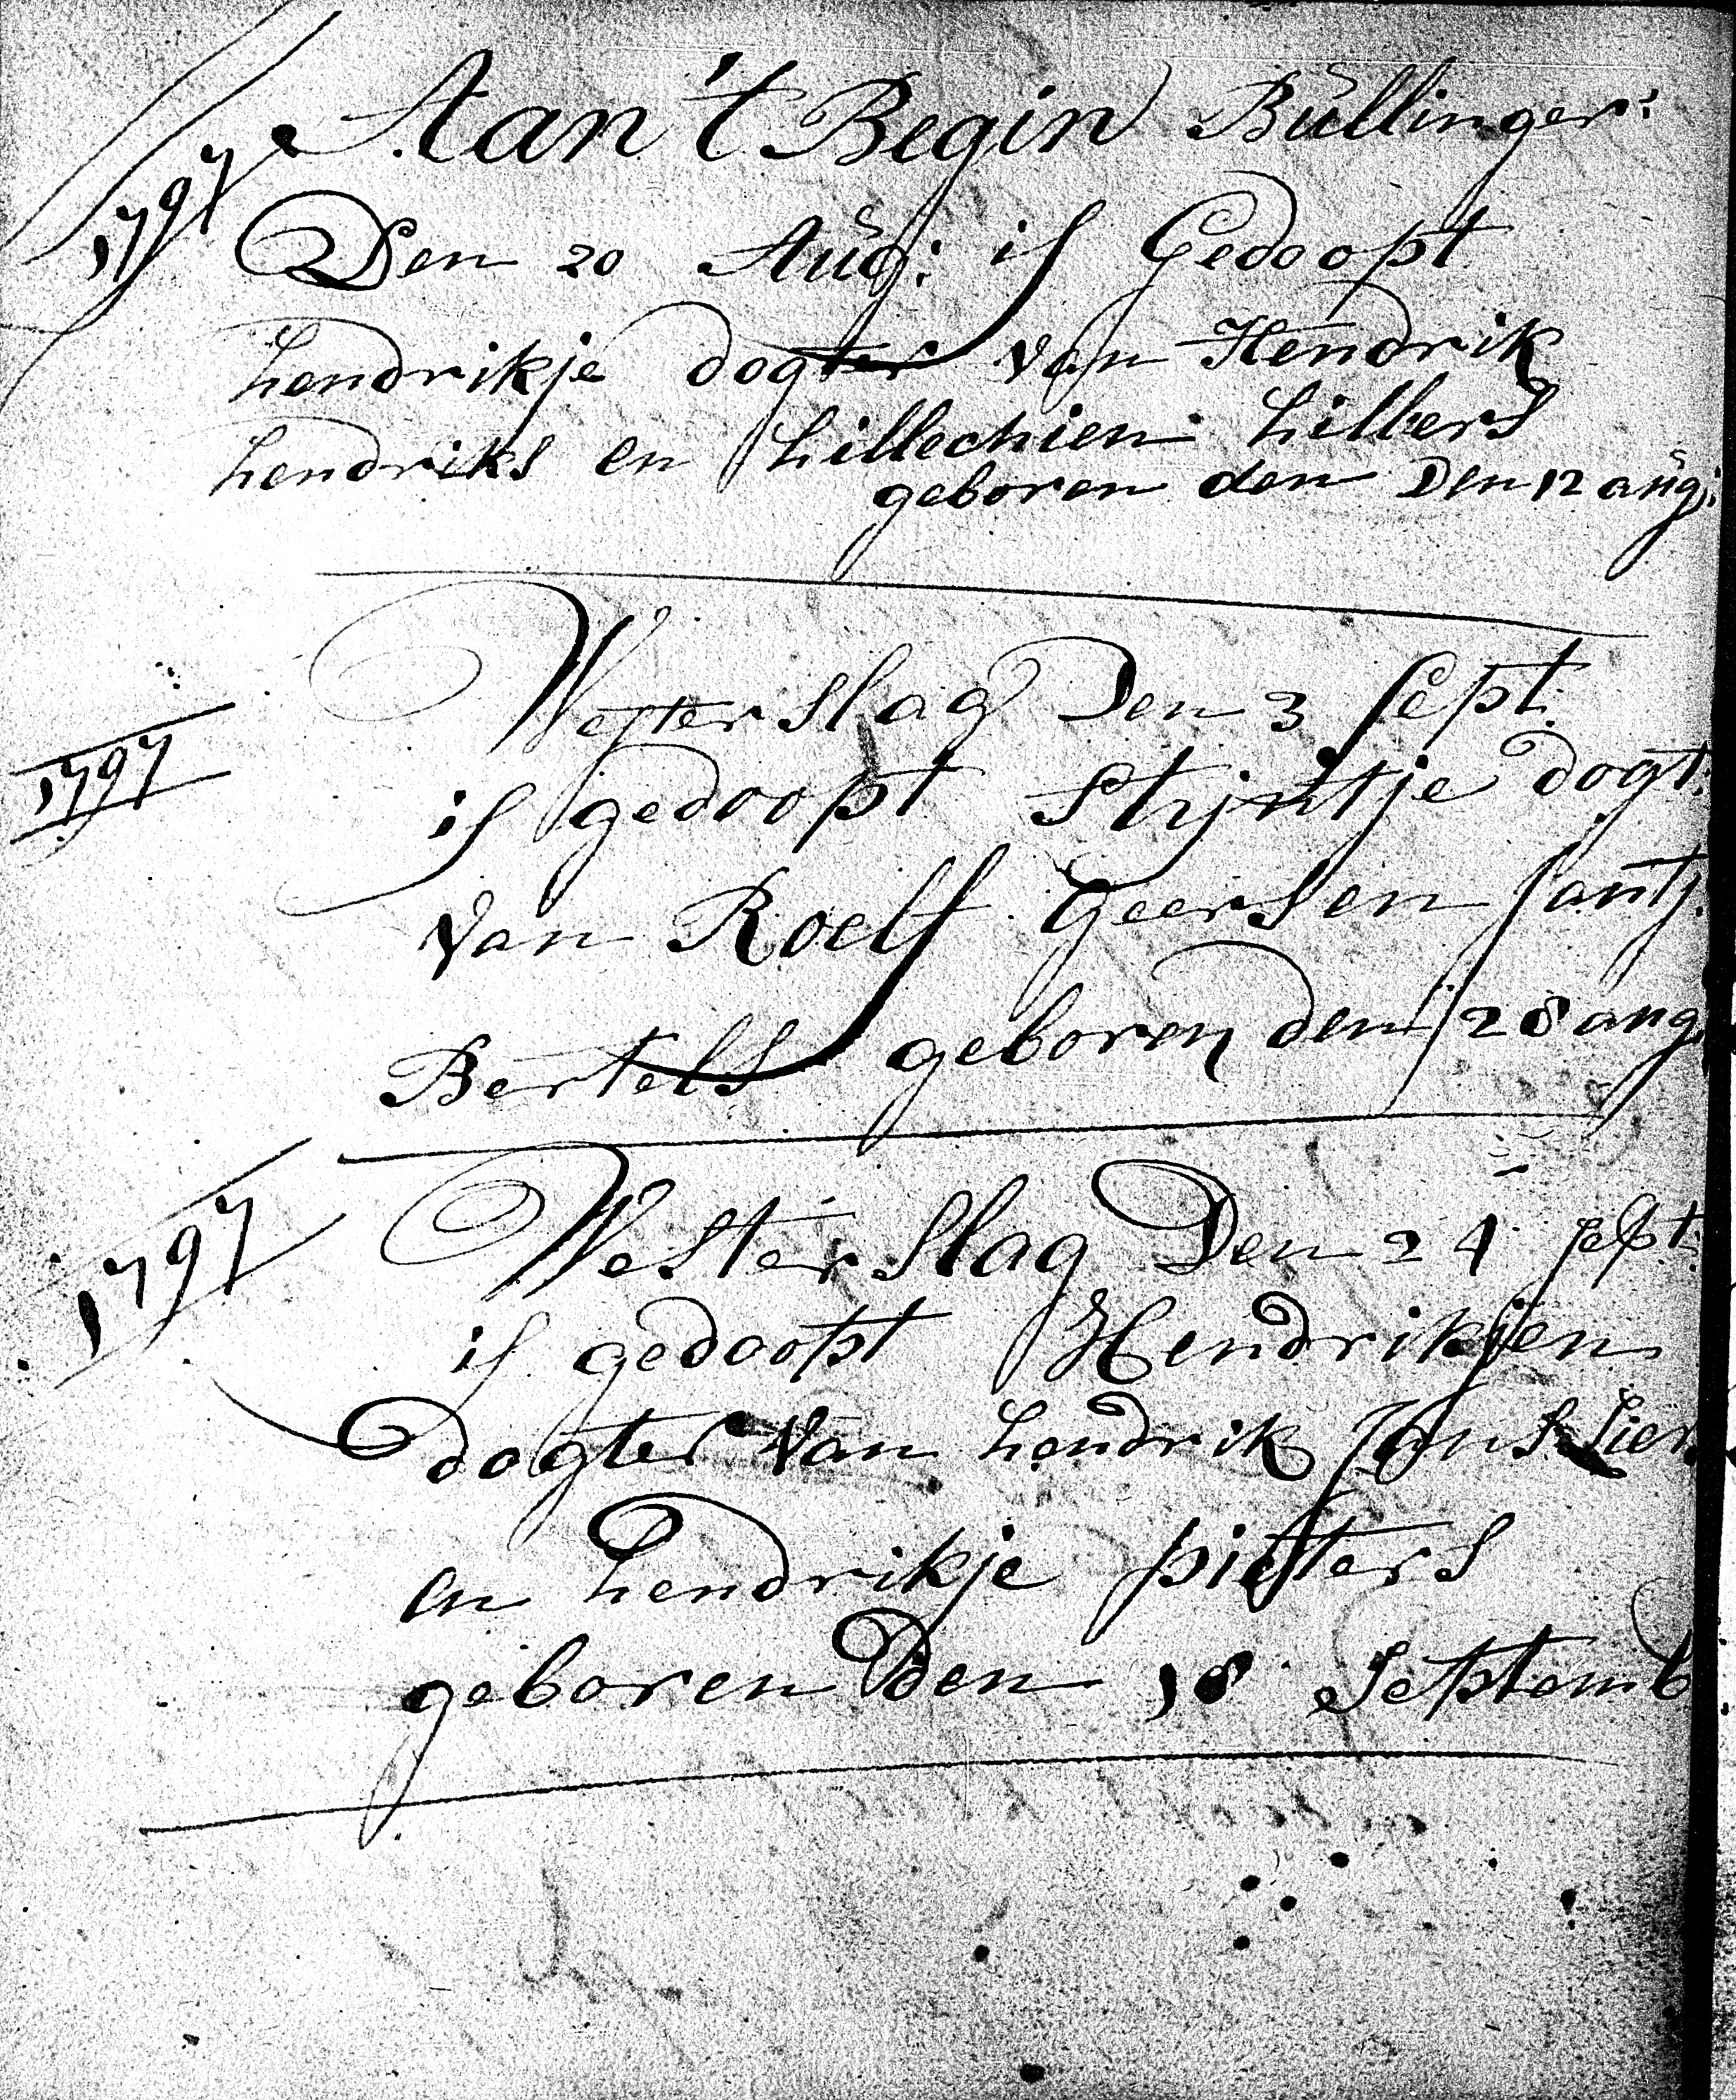 Aan 't Begin Büllinger:
1797 Den 20 Aüg: is Gedoopt
hendrikje dogter van Hendrik
hendriks en hillechien hilbers
geboren den Den 12 aüg:
Westerslag Den 3 Sept:
1797 is gedoopt Stijntje dogt:
van Roelf Geersen Jantj.
Bertels geboren den 28 aug.
Wester Slag Den 24 sept:
1797 is gedoopt Hendrikjen
dogter van hendrik Jans
en hendrikje pieters
geboren den 18 Septemb